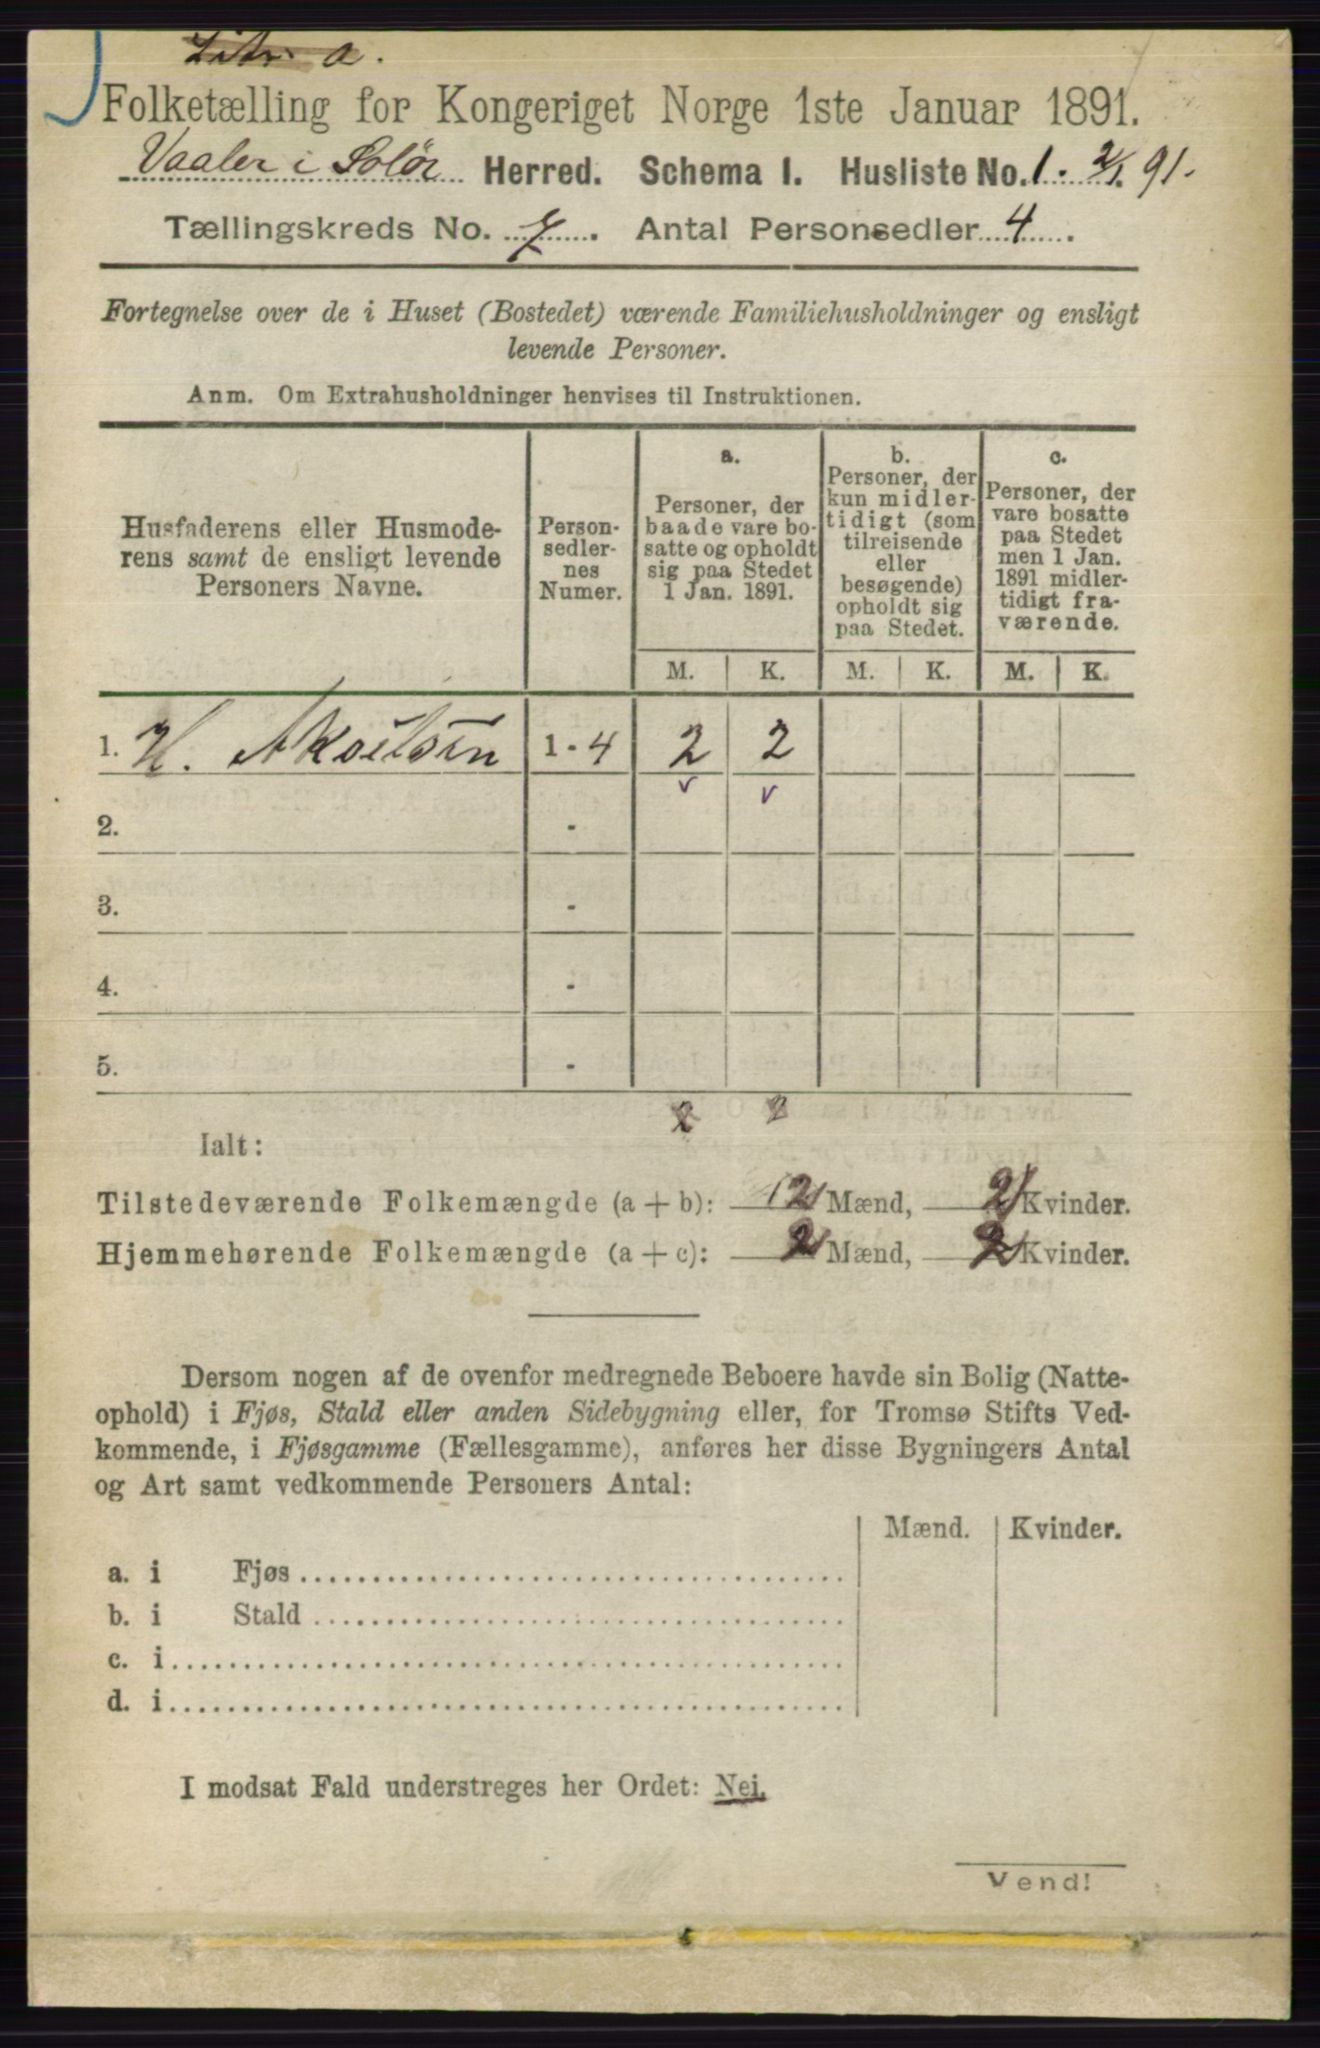 Litr. a.
Folketælling for Kongeriget Norge 1ste Januar 1891.
Vaaler i Solør Herred. Schema I. Husliste No. 1. 2/1. 91.
Tællingskreds No. 7. Antal Personsedler 4.
Fortegnelse over de i Huset (Bostedet) værende Familiehusholdninger og ensligt
levende Personer.
Anm. Om Extrahusholdninger henvises til Instruktionen.
Husfaderens eller Husmode-
rens samt de ensligt levende
Personers Navne.
Person-
sedler-
nes
Numer.
a.
Personer, der
baade vare bo-
satte og opholdt
sig paa Stedet
1 Jan. 1891.
b.
Personer, der
kun midler-
tidigt (som
tilreisende
eller
besøgende)
opholdt sig
paa Stedet.
c.
Personer, der
vare bosatte
paa Stedet
men 1 Jan.
1891 midler-
tidigt fra-
værende.
M. K. M. K. M. K.
1. H. Akselsen 1 - 4 2 2
v v
2. -
3. -
4. -
5. -
2 2
Ialt:
Tilstedeværende Folkemængde (a + b): 2 Mænd, 2 Kvinder.
Hjemmehørende Folkemængde (a + c): 2 Mænd, 2 Kvinder.
Dersom nogen af de ovenfor medregnede Beboere havde sin Bolig (Natte-
ophold) i Fjøs, Stald eller anden Sidebygning eller, for Tromsø Stifts Ved-
kommende, i Fjøsgamme (Fællesgamme), anføres her disse Bygningers Antal
og Art samt vedkommende Personers Antal:
Mænd. Kvinder.
a. i Fjøs
b. i Stald
c. i
d. i
I modsat Fald understreges her Ordet: Nei.
Vend!